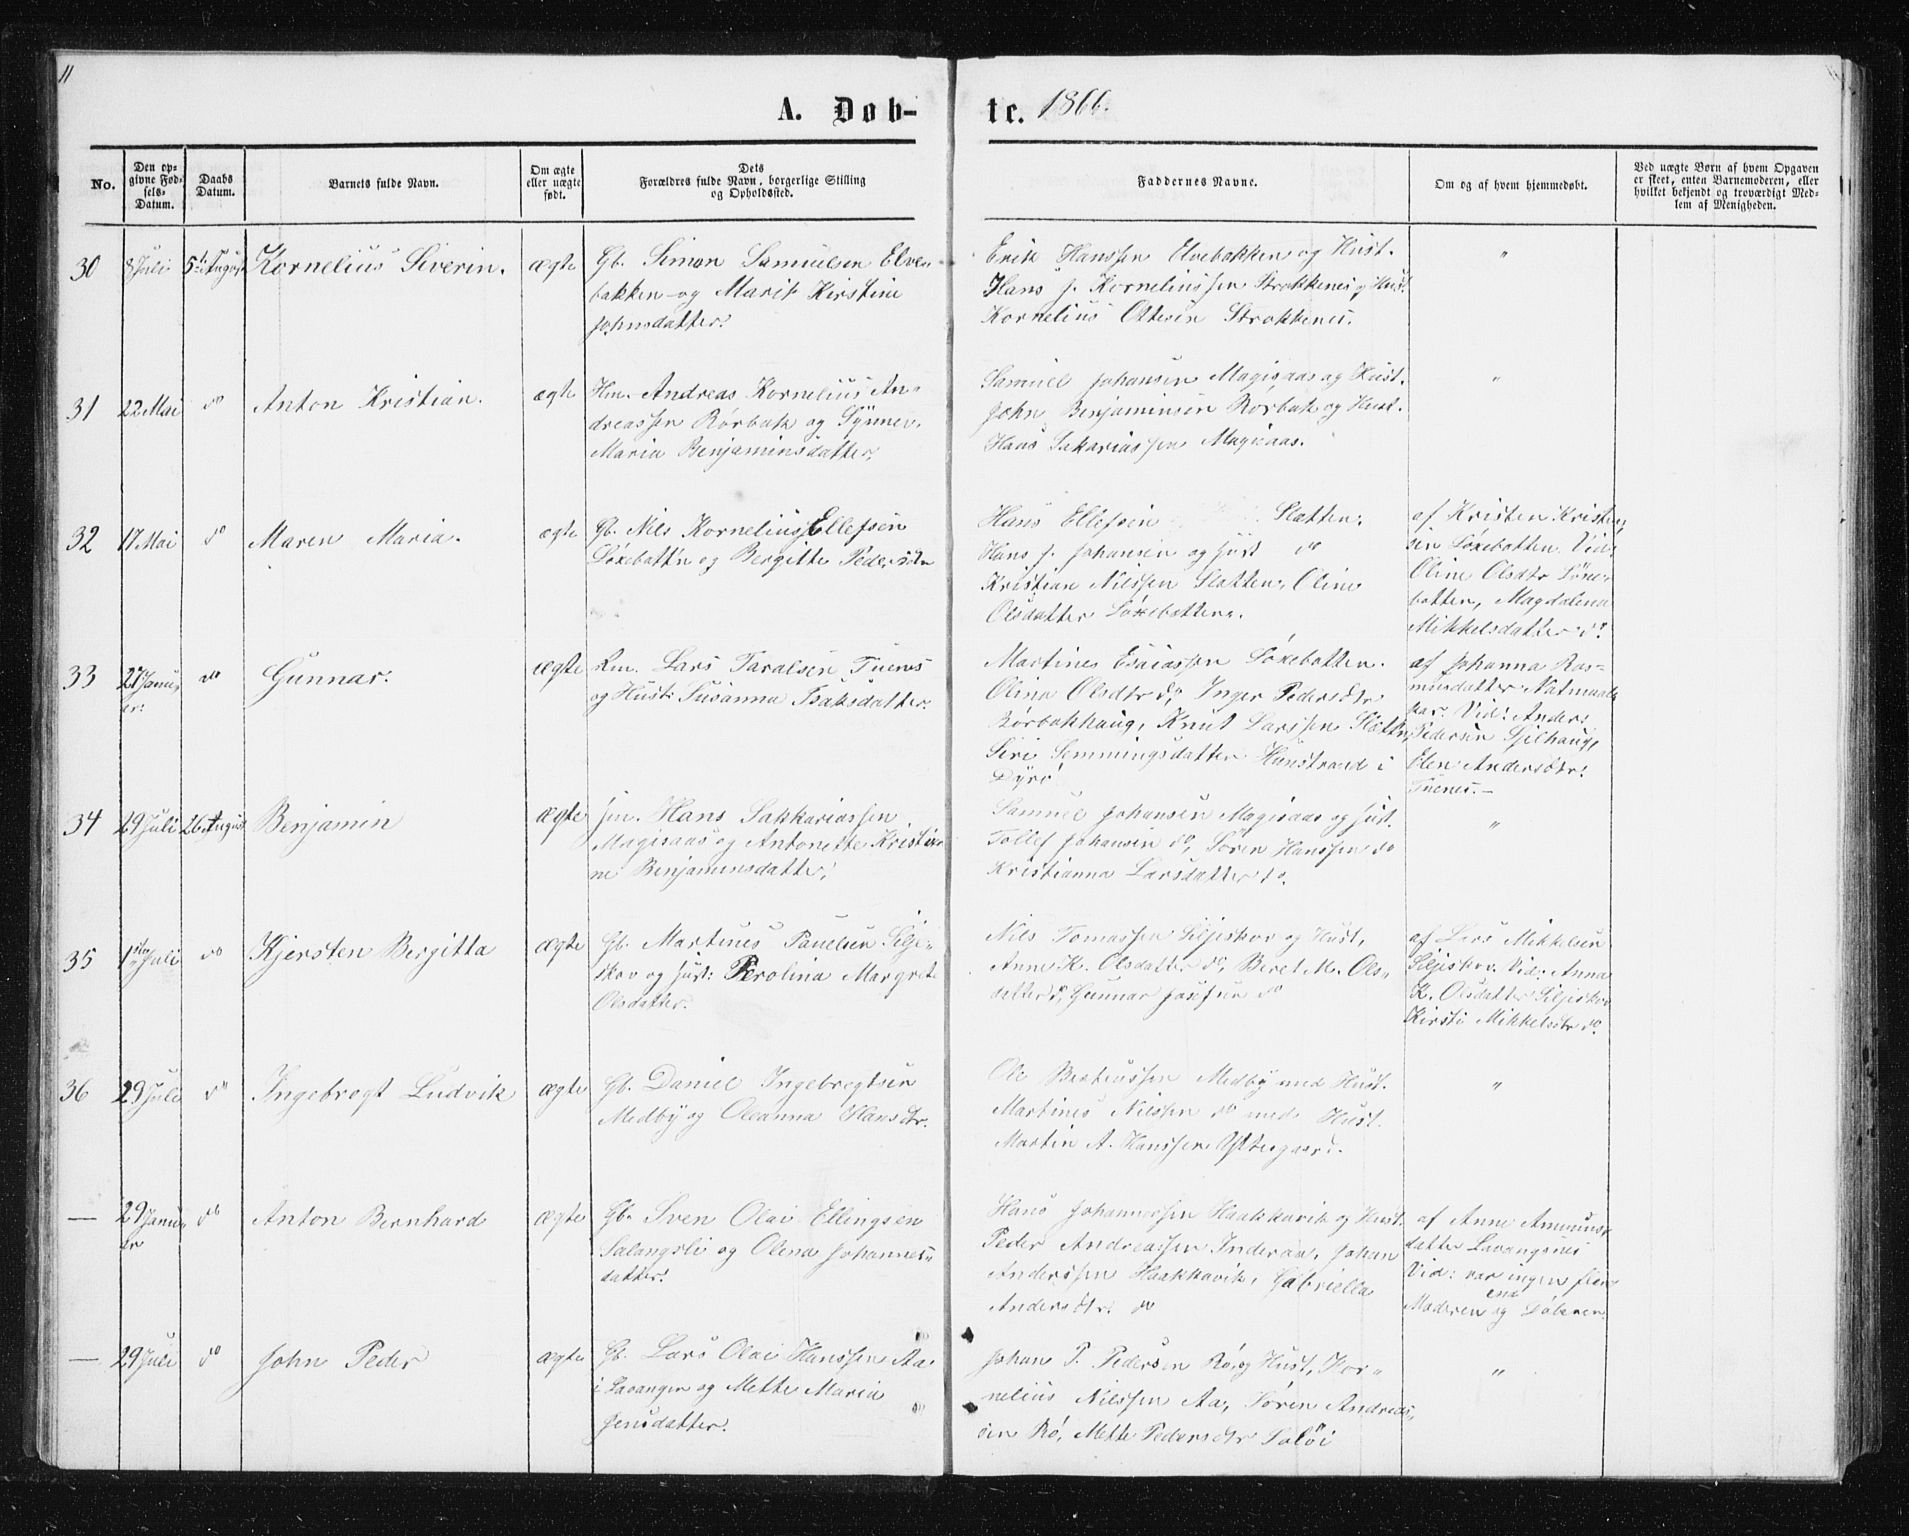 11
A. Døb-
te. 1866.
No.
Den op-
givne Fød-
sels-
Datum.
Daabs
Datum.
Barnets fulde Navn.
Om ægte
eller uægte
født.
Dets
Forældres fulde Navn, borgerlige Stilling
og Opholdssted.
Faddernes Navne.
Om og af hvem hjemmedøbt.
Ved uægte Børn af hvem Opgaven
er skeet, enten Barnemoderen, eller
hvilket bekjendt og troværdigt Med-
lem af Menigheden.
30
8 Juli
5te August
Kornelius Siverin.
ægte
Gb. Simon Samuelsen Elve-
bakken og Marit Kirstine
Johnsdatter.
Erik Hanssen Elvebakken og Hust.
Hans J. Korneliussen Strokkenes og Hust.
Kornelius Ottesen Strokkenes.
"
31
22 Mai
do
Anton Kristian.
ægte
Hm. Andreas Kornelius An-
dreassen Rørbak og Synnev
Maria Benjaminsdatter.
Samuel Johansen Magisaas og Hust.
John Benjaminsen Rørbak og Hust.
Hans Sakariassen Magisaas.
"
32
17 Mai
do
Maren Maria.
ægte
Gb. Nils Kornelius Ellefsen
Løxebottn og Bergitte Pedersdtr
Hans Ellefsen Slotten.
Hans J. Johansen og Hust do
Kristian Nilssen Slotten, Oline
Olsdatter Løxebotten.
af Kristen Kristen-
sen Løxebotten. Vid:
Oline Olsdtr Løxe-
botten, Magdalena
Mikkelsdatter do.
33
27 Janu-
ar.
do
Gunnar.
ægte
Lm. Lars Taralsen Tuenes
og Hust. Susanna Isaksdatter.
Martines Esaiassen Løxebotten.
Olina Olsdtr do, Inger Pedersdtr
Rørbakhaug, Knut Larssen Slottn,
Siri Semmingsdatter Hunstrand i
Dyrø
af Johanna Ras-
musdatter Vatmaal-
har. Vid: Anders
Pedersen Sjilhaug,
Elen Andersdtr
Tuenes.—
34
29 Juli
26 August
Benjamin
ægte
Hm. Hans Sakkariassen
Magisaas og Antonette Kristia-
ne Benjaminsdatter.
Samuel Johansen Magisaas og Hust.
Tollef Johansen do, Søren Hanssen do
Kristianna Larsdatter do.
"
35
1ste Juli
do
Kjersten Bergitta
ægte
Gb. Martines Paulsen Silje-
skov og Hust: Karolina Margrete
Olsdatter.
Nils Tomassen Siljeskov og Hust,
Anne K. Olsdatter do, Beret M. Ols-
datter do, Gunnar Josefsen do
af Lars Mikkelsen
Siljeskov. Vid: Anna
K. Olsdatter Siljeskov
Kirsti Mikkelsdtr do.
36
29 Juli
do
Ingebregt Ludvik
ægte
Gb. Daniel Ingebregtsen
Medby og Oleanna Hansdtr.
Ole Berteussen Medby med Hust.
Martines Nilssen do med Hust.
Martin A. Hanssen Yttergaard.
"
—
29 Janu-
ar
do
Anton Bernhard
ægte
Gb. Sven Olai Ellingsen
Salangsli og Olena Johannes-
datter.
Hans Johannessen Haakkavik og Hust.
Peder Andreassen Inderaa, Johan
Anderssen Haakkavik, Gabriella
Andersdtr. do
af Anne Ammuns-
datter Lavangsnes
Vid: var ingen fler
end
Moderen og Døberen.
—
29 Juli
do
John Peder
ægte
Gb. Lars Olai Hanssen Aa
i Lavangen og Mette Maria
Jensdatter.
Johan P. Pedersen Rø og Hust, Kor-
nelius Nilssen Aa, Søren Andreas-
sen Rø, Mette Pedersdtr Soløi
"